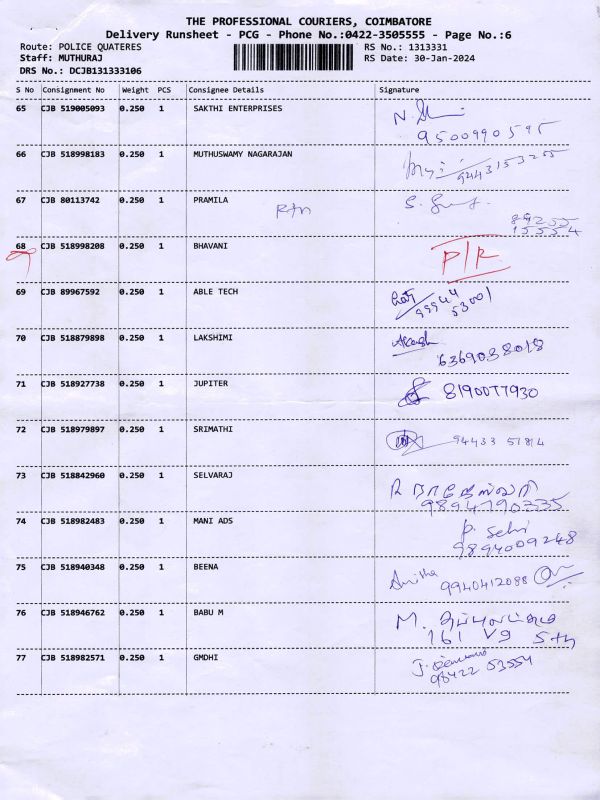 THE PROFESSIONAL COURIERS, COIMBATORE
Delivery Runsheet - PCG - Phone No.:0422-3505555 - Page No.:6
Route: POLICE QUATERES RS No.: 1313331
Staff: MUTHURAJ RS Date: 30-Jan-2024
DRS No.: DCJB131333106
S No Consignment No Weight PCS Consignee Details Signature
65 CJB 519005093 0.250 1 SAKTHI ENTERPRISES
9500990595
66 CJB 518998183 0.250 1 MUTHUSWAMY NAGARAJAN
9443153255
67 CJB 80113742 0.250 1 PRAMILA
89255
15554
68 CJB 518998208 0.250 1 BHAVANI P/R
69 CJB 89967592 0.250 1 ABLE TECH
99944
53001
70 CJB 518879898 0.250 1 LAKSHIMI Akash
6369038018
71 CJB 518927738 0.250 1 JUPITER 8190077930
72 CJB 518979897 0.250 1 SRIMATHI 94433 51814
73 CJB 518842960 0.250 1 SELVARAJ R ராஜேஸ்வரி
9894790335
74 CJB 518982483 0.250 1 MANI ADS P. Selvi
9894009248
75 CJB 518940348 0.250 1 BEENA Anitha 9940412088
76 CJB 518946762 0.250 1 BABU M M.
161 V9 5th
77 CJB 518982571 0.250 1 GMDHI J.
98422 53554